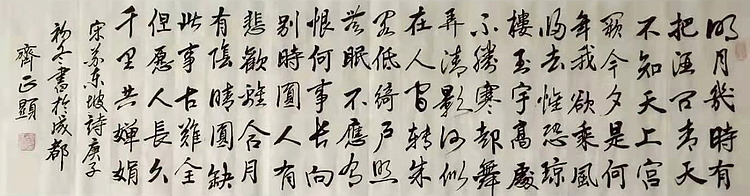 明月幾時有
把酒问青天
不知天上宫
闕今夕是何
年我欲乘風
归去惟恐琼
樓玉宇高處
不勝寒起舞
弄清影何似
在人间转朱
阁低绮户照
無眠不應有
恨何事長向
别時圓人有
悲歡離合月
有陰晴圓缺
此事古難全
但愿人長久
千里共嬋娟
宋苏东坡詩庚子
初冬書於成都
齊正顯